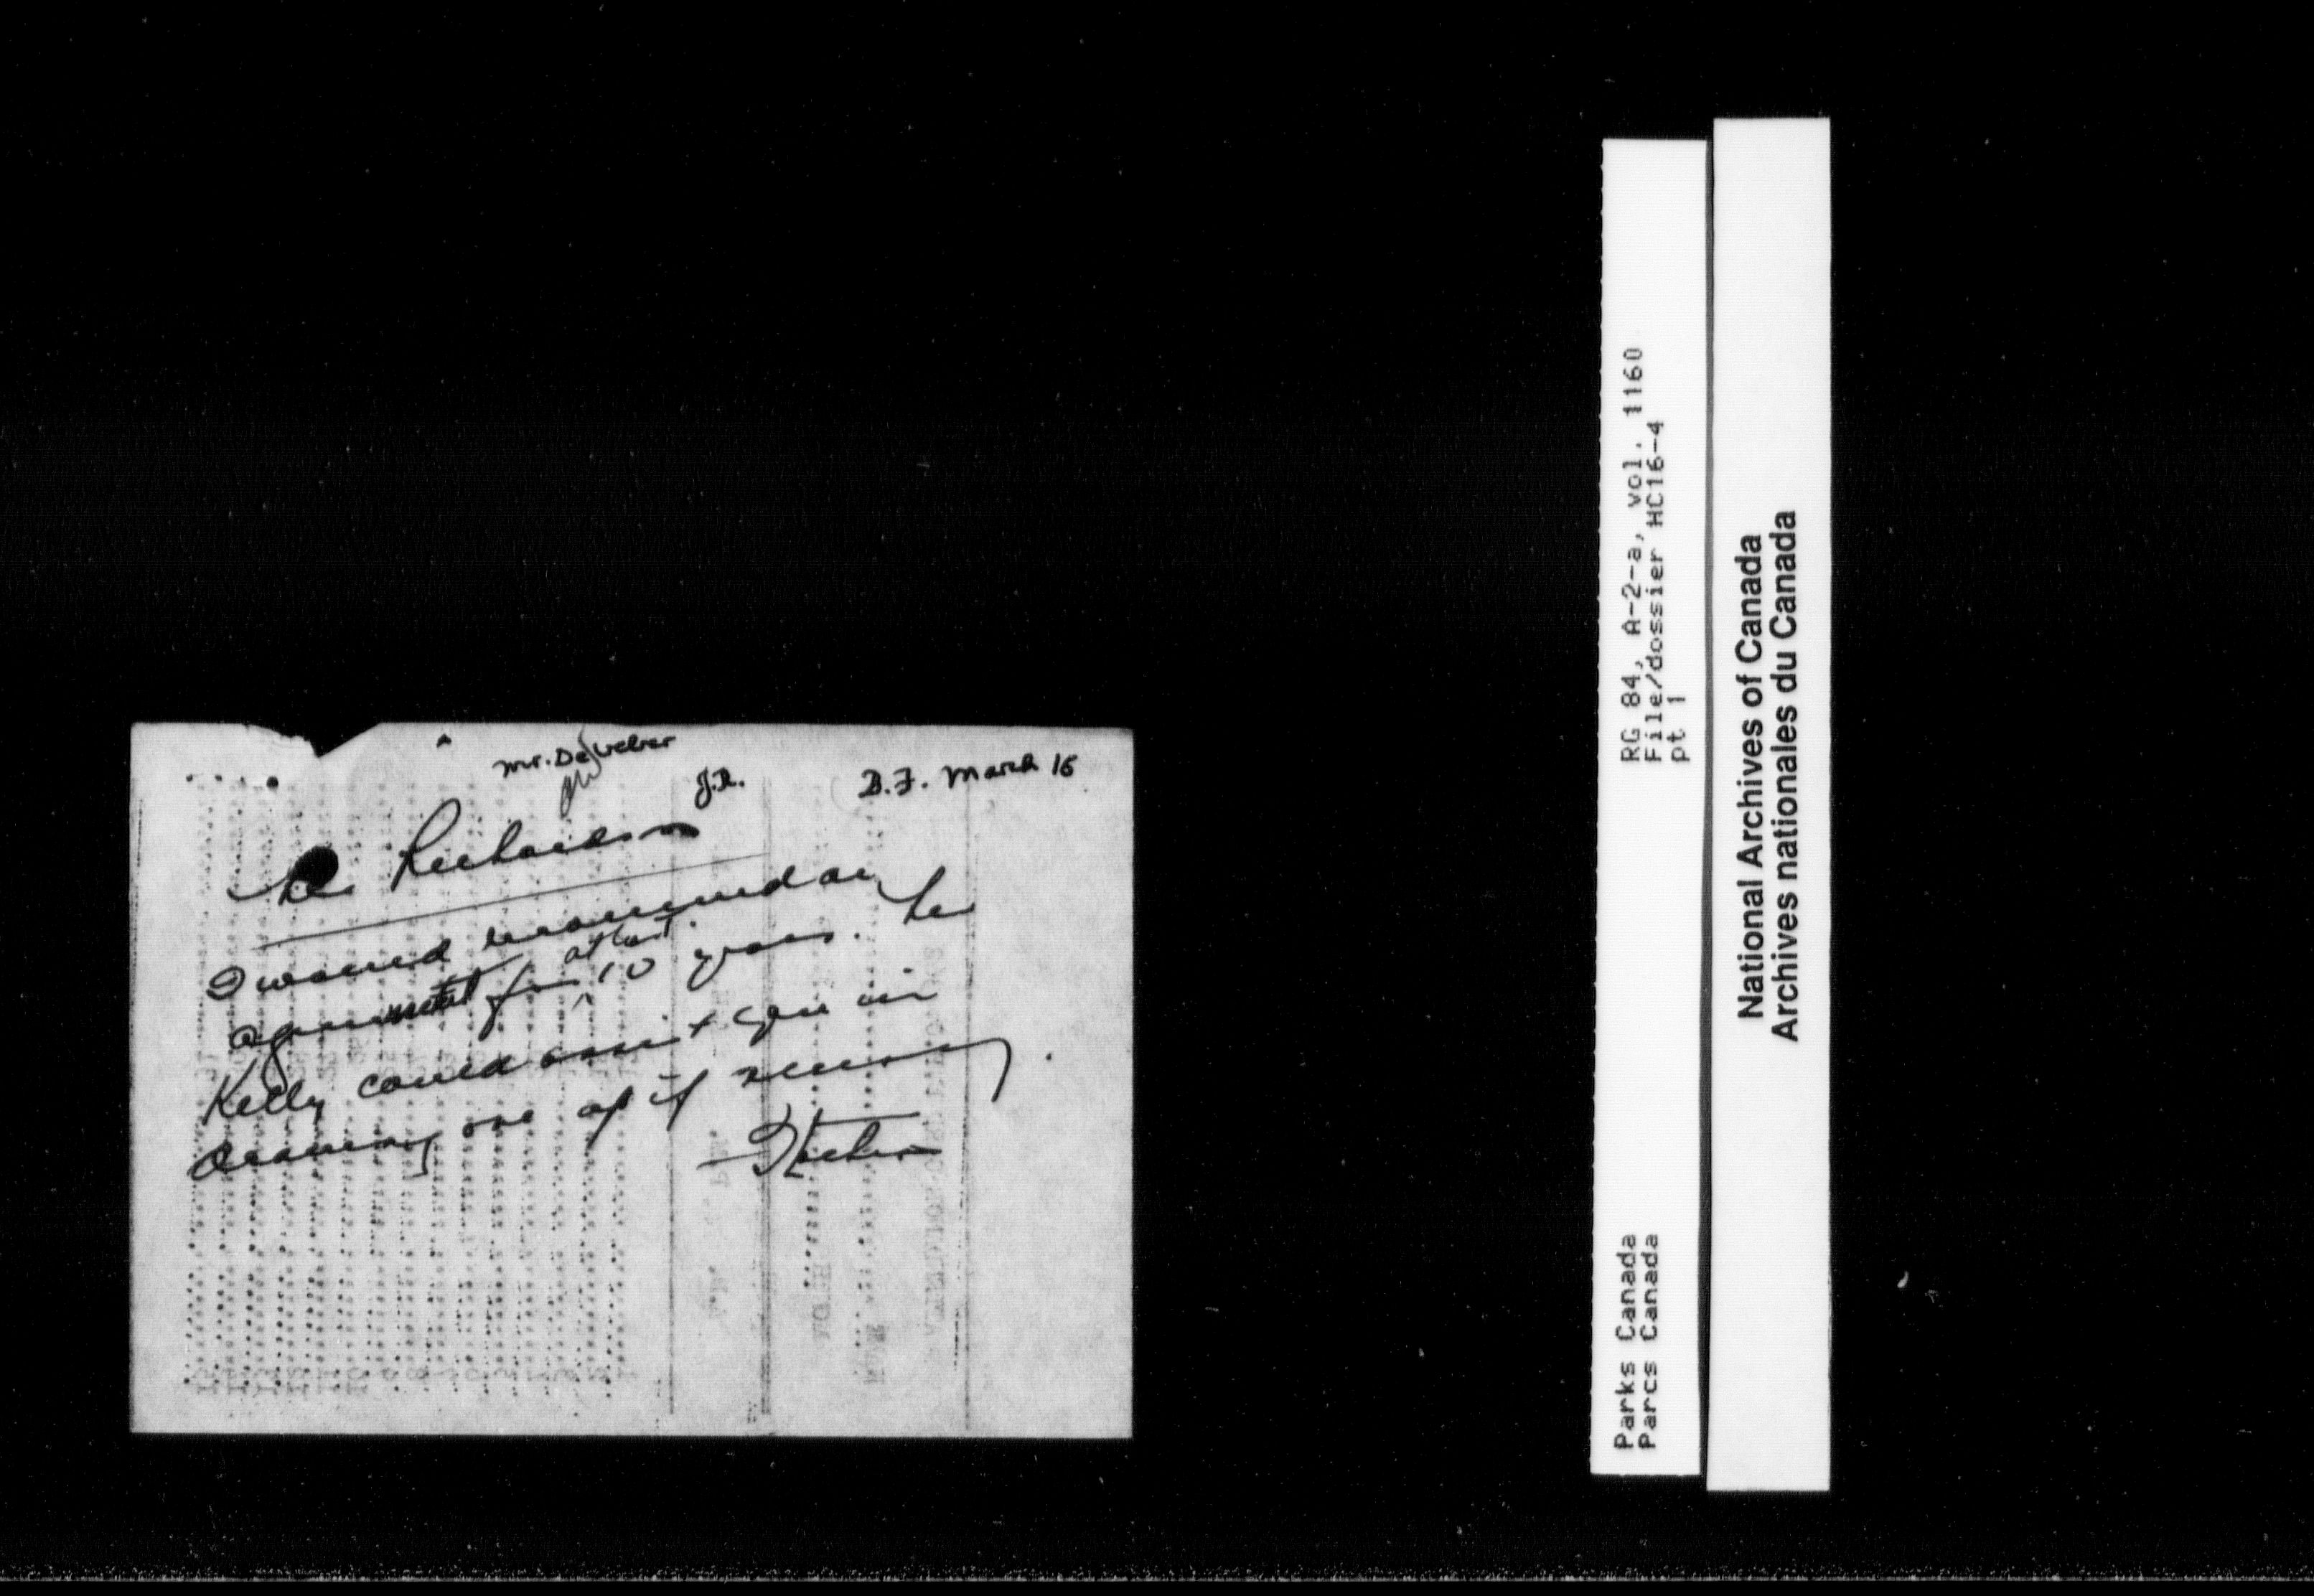 Mr. De Weber
J.R. B.F. March 16
Mr Richardson
I would recommend an
agreement for at least 10 years. Mr
Kelly could assist you in
drawing one up if necessary.
RG 84, A-2-a, vol. 1160
File/dossier HC16-4
pt 1
Parks Canada
Parcs Canada
National Archives of Canada
Archives nationales du Canada